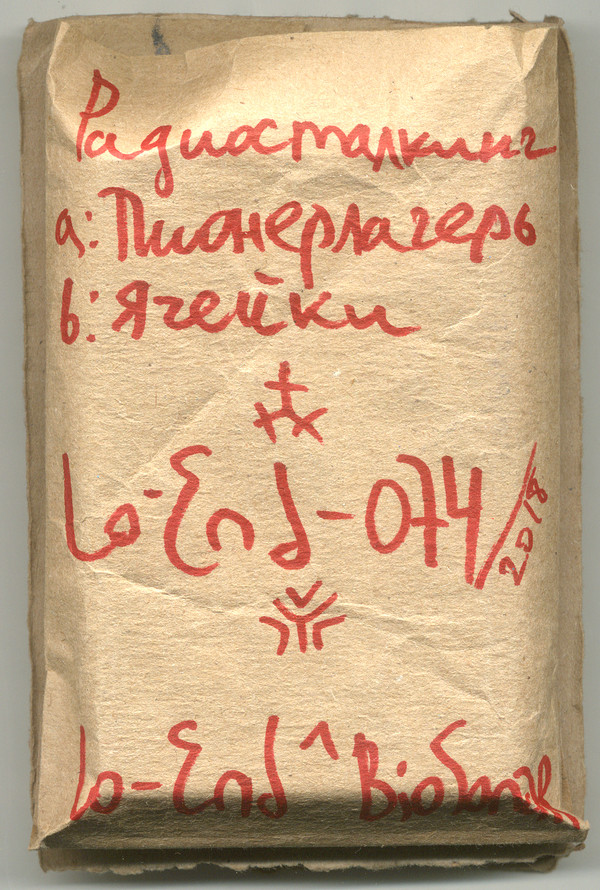 Радиосталкинг
a: Пионерлагерь
b: Ячейки
Lo-End-074/2018
Lo-End ^ BioSonar